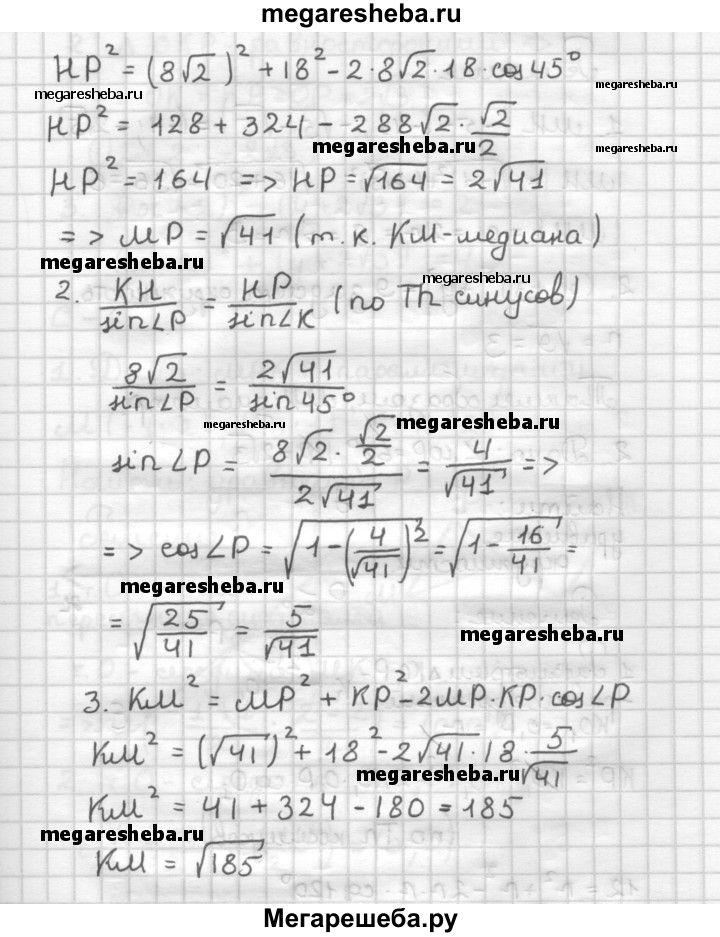 megaresheba.ru
HP² = (8√2)² + 18² - 2·8√2·18·cos 45°
megaresheba.ru
megaresheba.ru
HP² = 128 + 324 - 288√2 · √2/2
megaresheba.ru
HP² = 164 => HP = √164 = 2√41
=> MP = √41 (т.к. КМ-медиана)
megaresheba.ru
megaresheba.ru
2. KH/sin∠P = HP/sin∠K (по Th синусов)
8√2/sin∠P = 2√41/sin 45°
megaresheba.ru
megaresheba.ru
sin∠P = (8√2 · √2/2)/(2√41) = 4/√41 =>
=> cos∠P = √(1-(4/√41)²) = √(1-16/41) =
megaresheba.ru
= √(25/41) = 5/√41
megaresheba.ru
3. KM² = MP² + KP² - 2MP·KP·cos∠P
KM² = (√41)² + 18² - 2√41·18·5/√41
megaresheba.ru
KM² = 41 + 324 - 180 = 185
megaresheba.ru
KM = √185
Мегарешеба.ру